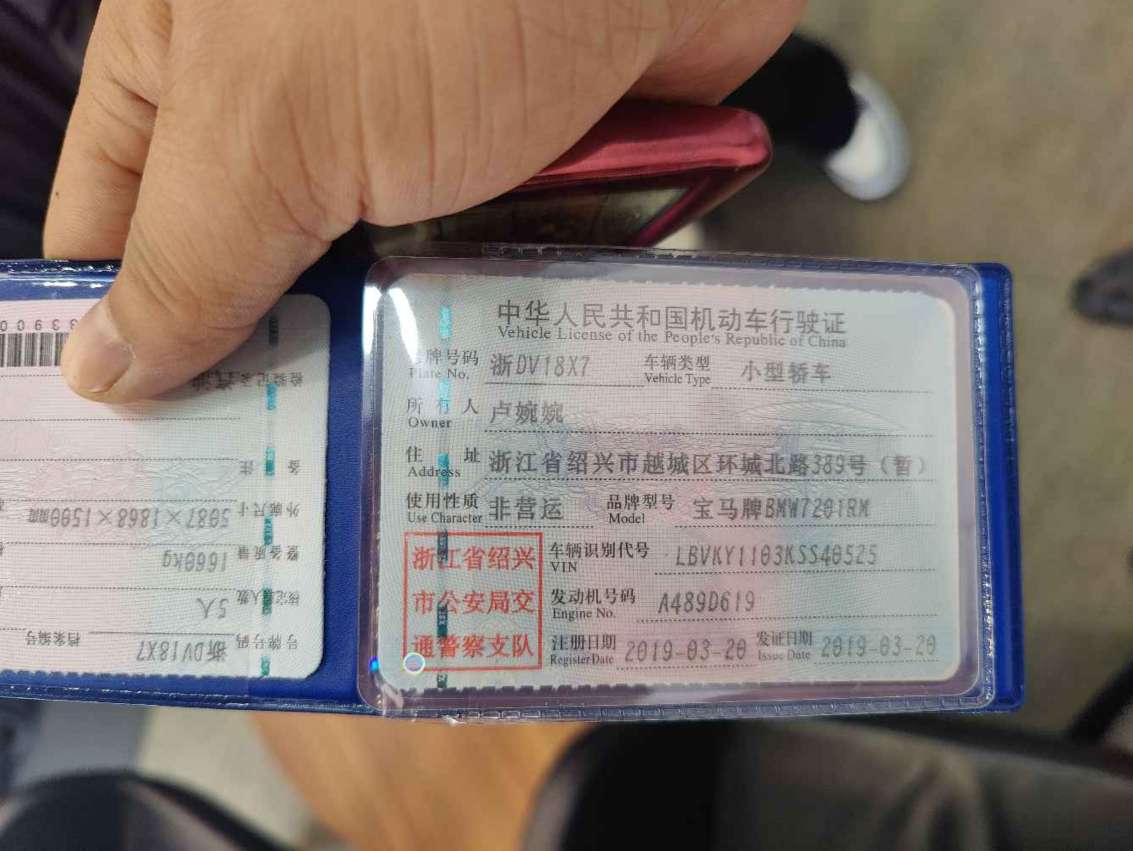 中华人民共和国机动车行驶证
Vehicle License of the People's Republic of China
号牌号码 浙DV18X7 车辆类型 小型轿车
Plate No. Vehicle Type
所有人 卢婉婉
Owner
住址 浙江省绍兴市越城区环城北路389号（暂）
Address
使用性质 非营运 品牌型号 宝马牌BMW7201RM
Use Character Model
浙江省绍兴
市公安局交
通警察支队
车辆识别代号 LBVKY1103KSS40525
VIN
发动机号码 A489D619
Engine No.
注册日期 2019-03-20 发证日期 2019-03-20
Register Date Issue Date
号牌号码 浙DV18X7 档案编号
核定载人数 5人
整备质量 1660kg
外廓尺寸 5087×1868×1500mm
备注
检验记录